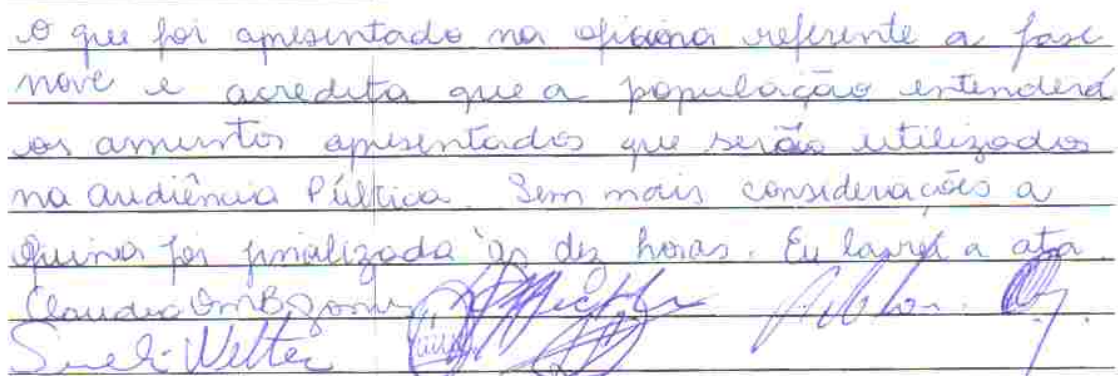 o que foi apresentado na oficina referente a fase
nove e acredita que a população entenderá
os assuntos apresentados que serão utilizados
na audiência Pública. Sem mais considerações a
foi finalizada às dez horas. Eu lavrei a ata.
Sueli Welter